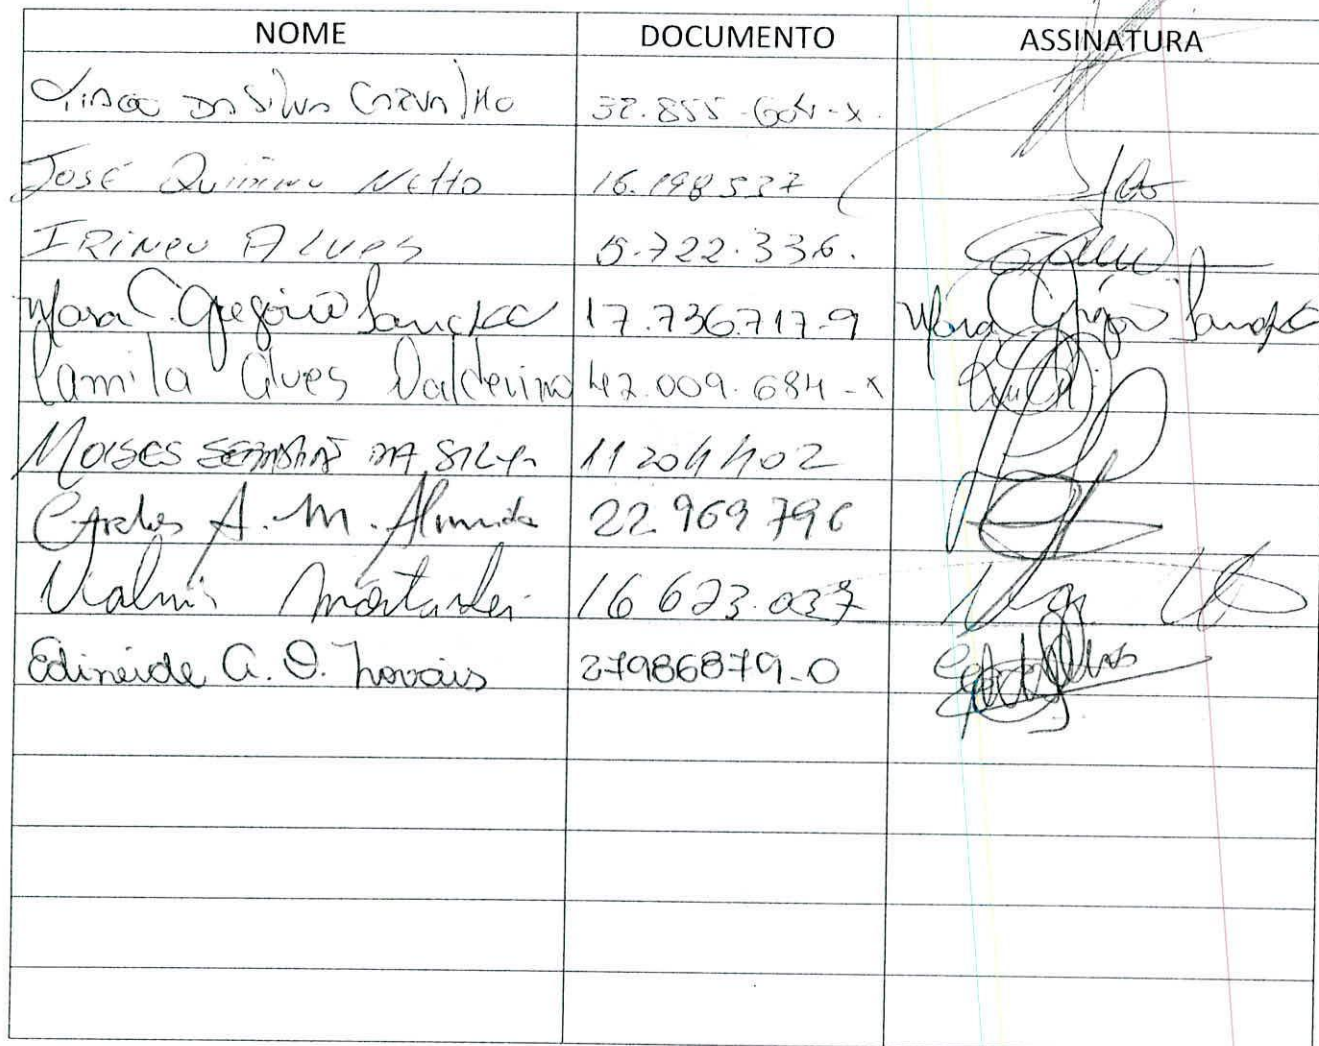 NOME DOCUMENTO ASSINATURA
Tiago da Silva Carvalho 32.855.604-X.
José Quirino Netto 16.198537
IRINEU ALVES 15.722.336.
Mara C. Gregório 17.736.717-9 Mara
Camila Alves Valdevino 42.009.684-X
MOISES SEBASTIÃO DA SILVA 11204402
Carlos A. M. Almeida 22.969796
Valmir 16 623.037
Edineide A. O. Novais 27986879-0